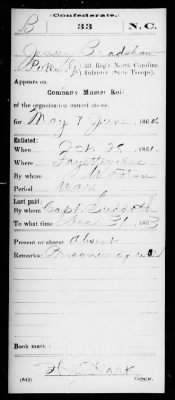 Confederate.
B 33 N.C.
Jersey Bradshaw
Pvt, Co. G, 33 Reg't North Carolina
Infantry (State Troops).
Appears on
Company Muster Roll
of the organization named above,
for May & June, 1864.
Enlisted:
When Feb 25, 186
Where Fayetteville
By whom Wooten
Period War
Last paid:
By whom Capt.
To what time Dec 31, 1863
Present or absent Absent
Remarks: Prisoner of war
Book mark:
(642) Copyist.